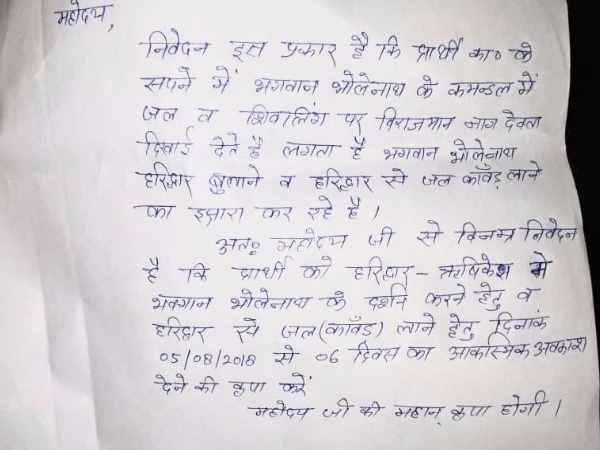 महोदय,
निवेदन इस प्रकार है कि प्रार्थी का० के
सपने में भगवान भोलेनाथ के कमन्डल में
जल व शिवालिंग पर विराजमान नाग देवता
दिखाई देते हैं लगता है भगवान भोलेनाथ
हरिद्वार बुलाने व हरिद्वार से जल काँवड़ लाने
का इशारा कर रहे है।
अतः महोदय जी से विनम्र निवेदन
है कि प्रार्थी को हरिद्वार - ऋषिकेश मे
भगवान भोलेनाथ के दर्शन करने हेतु व
हरिद्वार से जल (काँवड़) लाने हेतु दिनांक
05/08/2018 से 06 दिवस का आकस्मिक अवकाश
देने की कृपा करें
महोदय जी की महान् कृपा होगी।